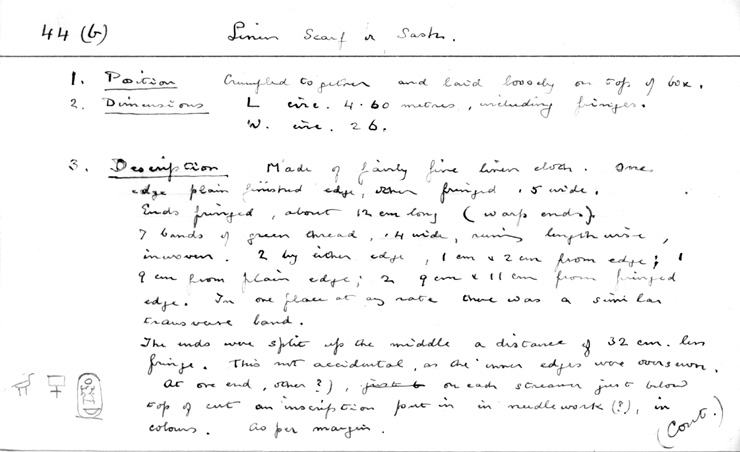 44 (b) Linen Scarf or Sash.
1. Position Crumpled together and laid loosely on top of box.
2. Dimensions L circ. 4.60 metres, including fringes.
W. circ. 26.
3. Description Made of fairly fine linen cloth. One
edge plain finished edge, other fringed .5 wide.
Ends fringed, about 12 cm long (warp ends).
7 bands of green thread, .4 wide, running lengthwise,
inwoven. 2 by either edge, 1 cm & 2 cm from edge; 1
9 cm from plain edge; 2 9 cm & 11 cm from fringed
edge. In one place at any rate there was a similar
transverse band.
The ends were split up the middle a distance of 32 cm. less
fringe. This not accidental, as the inner edges were oversewn.
At one end, other ?), on each streamer just below
top of cut an inscription put in in needlework (?), in
colours. As per margin.
(Cont.)